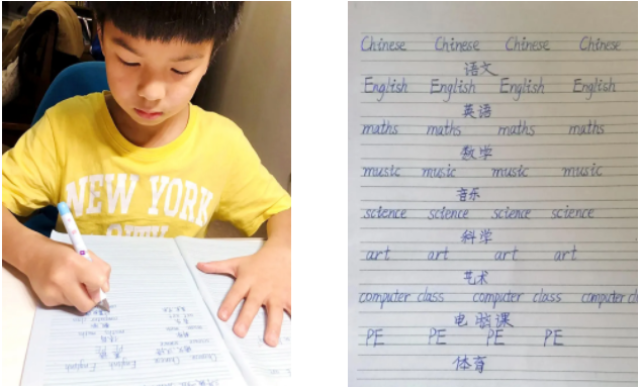 NEW YORK
CITY
Chinese Chinese Chinese Chinese
语文
English English English English
英语
maths maths maths maths
数学
music music music music
音乐
science science science science
科学
art art art art
艺术
computer class computer class computer cl
电脑课
PE PE PE PE
体育